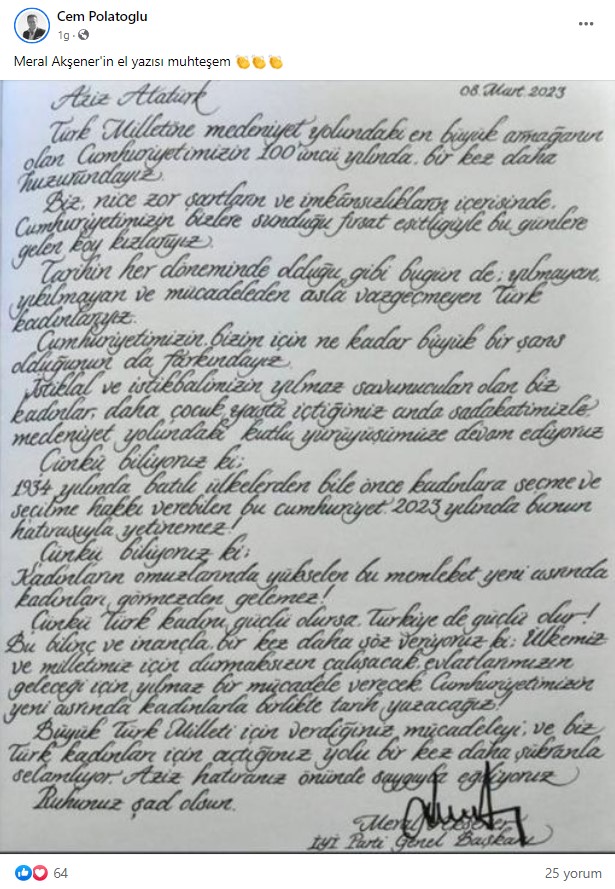 Cem Polatoglu
1g ·
Meral Akşener'in el yazısı muhteşem 👏👏👏
Aziz Atatürk
08. Mart. 2023
Türk Milletine medeniyet yolundaki en büyük armağanın
olan Cumhuriyetimizin 100'üncü yılında, bir kez daha
huzurundayız.
Biz, nice zor şartların ve imkânsızlıkların içerisinde,
Cumhuriyetimizin bizlere sunduğu fırsat eşitliğiyle bu günlere
gelen köy kızlarıyız.
Tarihin her döneminde olduğu gibi bugün de; yılmayan,
yıkılmayan ve mücadeleden asla vazgeçmeyen Türk
kadınlarıyız.
Cumhuriyetimizin, bizim için ne kadar büyük bir şans
olduğunun da farkındayız.
İstiklal ve istikbalimizin yılmaz savunucuları olan biz
kadınlar, daha çocuk yaşta içtiğimiz anda sadakatimizle,
medeniyet yolundaki kutlu yürüyüşümüze devam ediyoruz
Çünkü biliyoruz ki;
1934 yılında batılı ülkelerden bile önce kadınlara seçme ve
seçilme hakkı verebilen bu cumhuriyet, 2023 yılında bunun
hatırasıyla yetinemez!
Çünkü biliyoruz ki;
Kadınların omuzlarında yükselen bu memleket yeni asrında
kadınları, görmezden gelemez!
Çünkü Türk kadını, güçlü olursa, Türkiye de güçlü olur!
Bu bilinç ve inançla, bir kez daha söz veriyoruz ki; Ülkemiz
ve milletimiz için durmaksızın çalışacak, evlatlarımızın
geleceği için yılmaz bir mücadele verecek, Cumhuriyetimizin
yeni asrında kadınlarla birlikte tarih yazacağız!
Büyük Türk Milleti için verdiğiniz mücadeleyi, ve biz
Türk kadınları için açtığınız yolu bir kez daha şükranla
selamlıyor, Aziz hatıranız önünde saygıyla eğiliyoruz
Ruhunuz şad olsun.
Meral Akşener
İYİ Parti Genel Başkanı
64
25 yorum